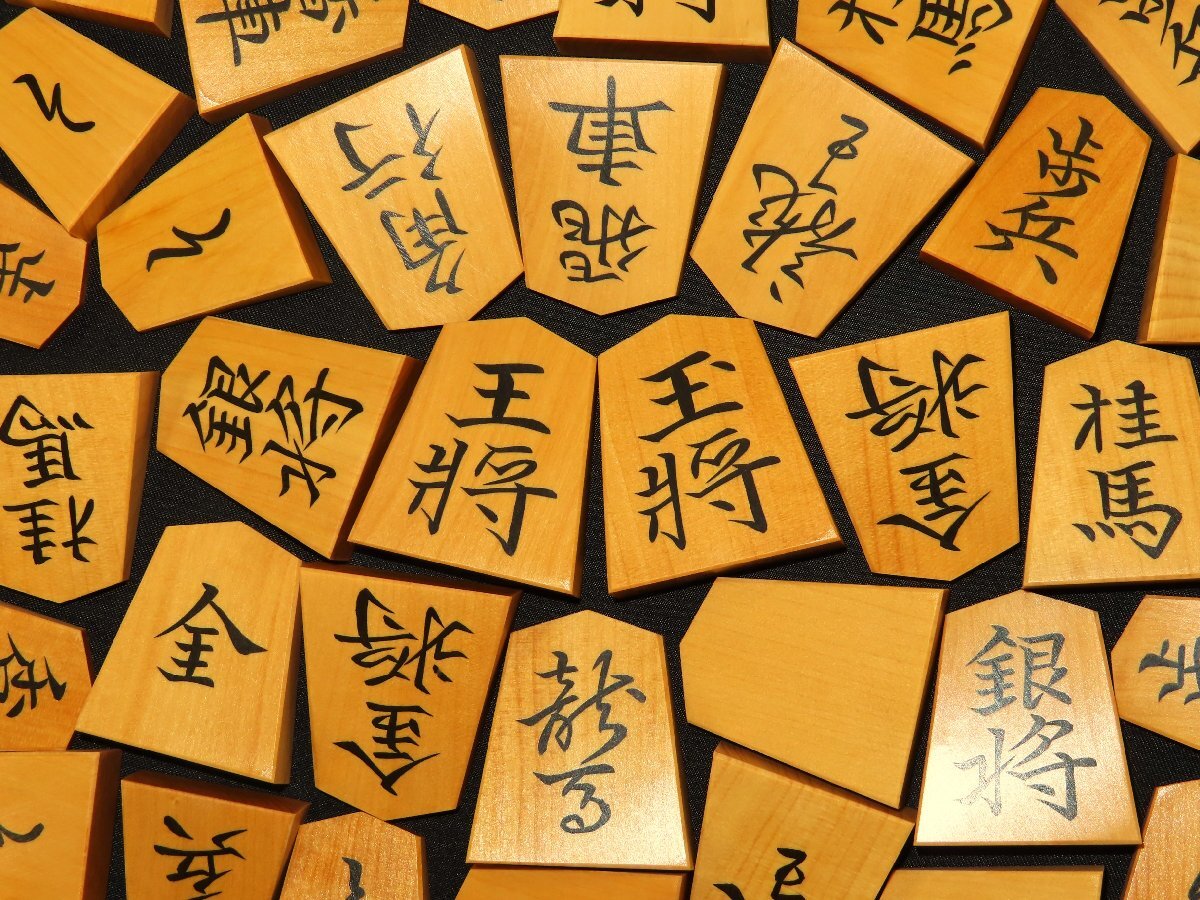 桂馬
角行
飛車
龍王
歩兵
と
と
銀将
王將
玉將
金将
桂馬
桂馬
全
金将
龍馬
銀将